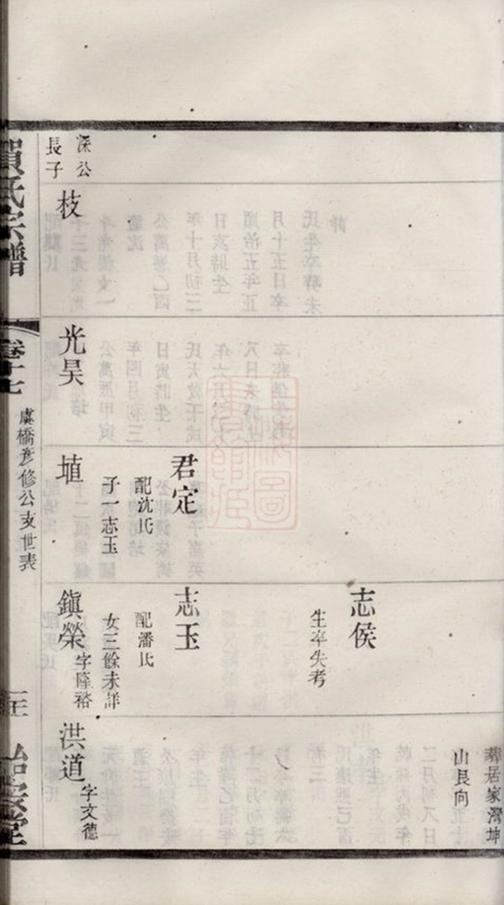 葬居家灣坤
山艮向
志侯
生卒失考
君定
配沈氏
子一志玉
志玉
配潘氏
女三餘未詳
深公
長子
枝
光昊
埴
鎮榮
字隆裕
洪道
字文德
賀氏宗譜
卷十七
虞橋彥修公支世表